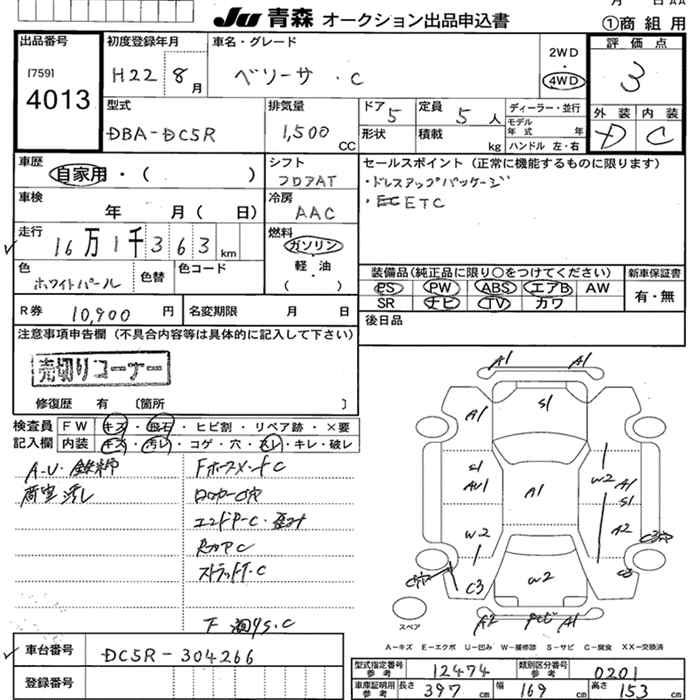 JU 青森 オークション出品申込書
①商 組 用
出品番号
[759]
4013
初度登録年月
H22 8月
車名・グレード
ベリーサ ・C
2WD
4WD
評 価 点
3
外 装 内 装
D C
型式
DBA-DC5R
排気量
1,500 CC
ドア 5
定員 5 人
形状
積載 kg
ディーラー・並行
モデル年式 年
ハンドル 左・右
車歴
自家用・( )
シフト
フロアAT
セールスポイント (正常に機能するものに限ります)
・ドレスアップパッケージ
・ETC
車検
年 月( 日)
冷房
AAC
走行
16万1千363km
燃料
ガソリン
軽・油
( )
色
ホワイトパール
色替
色コード
装備品(純正品に限り○をつけてください)
PS PW ABS エアB AW
SR ナビ TV カワ
新車保証書
有・無
R券 10,900 円
名変期限 月 日
後日品
注意事項申告欄 (不具合内容等は具体的に記入して下さい)
売切りコーナー
修復歴 有 〔箇所 〕
検査員 FW キズ・飛石・ヒビ割・リペア跡・×要
記入欄 内装 キズ・汚レ・コゲ・穴・スレ・キレ・破レ
A-U・鉄粉
荷室汚レ
ロッカーC穴
ストラットF・C
A1 A1
A1 S1
S1 AU1 A1 W2 A1 S1
W2 A2
C穴 C3 W2 C3 C3穴
A2 A1
スペア
A-キズ E-エクボ U-凹み W-補修跡 S-サビ C-腐食 XX-交換済
車台番号 DC5R-304266
登録番号
型式指定番号参考 12474
類別区分番号参考 0201
車庫証明用参考 長さ 397 cm 幅 169 cm 高さ 153 cm